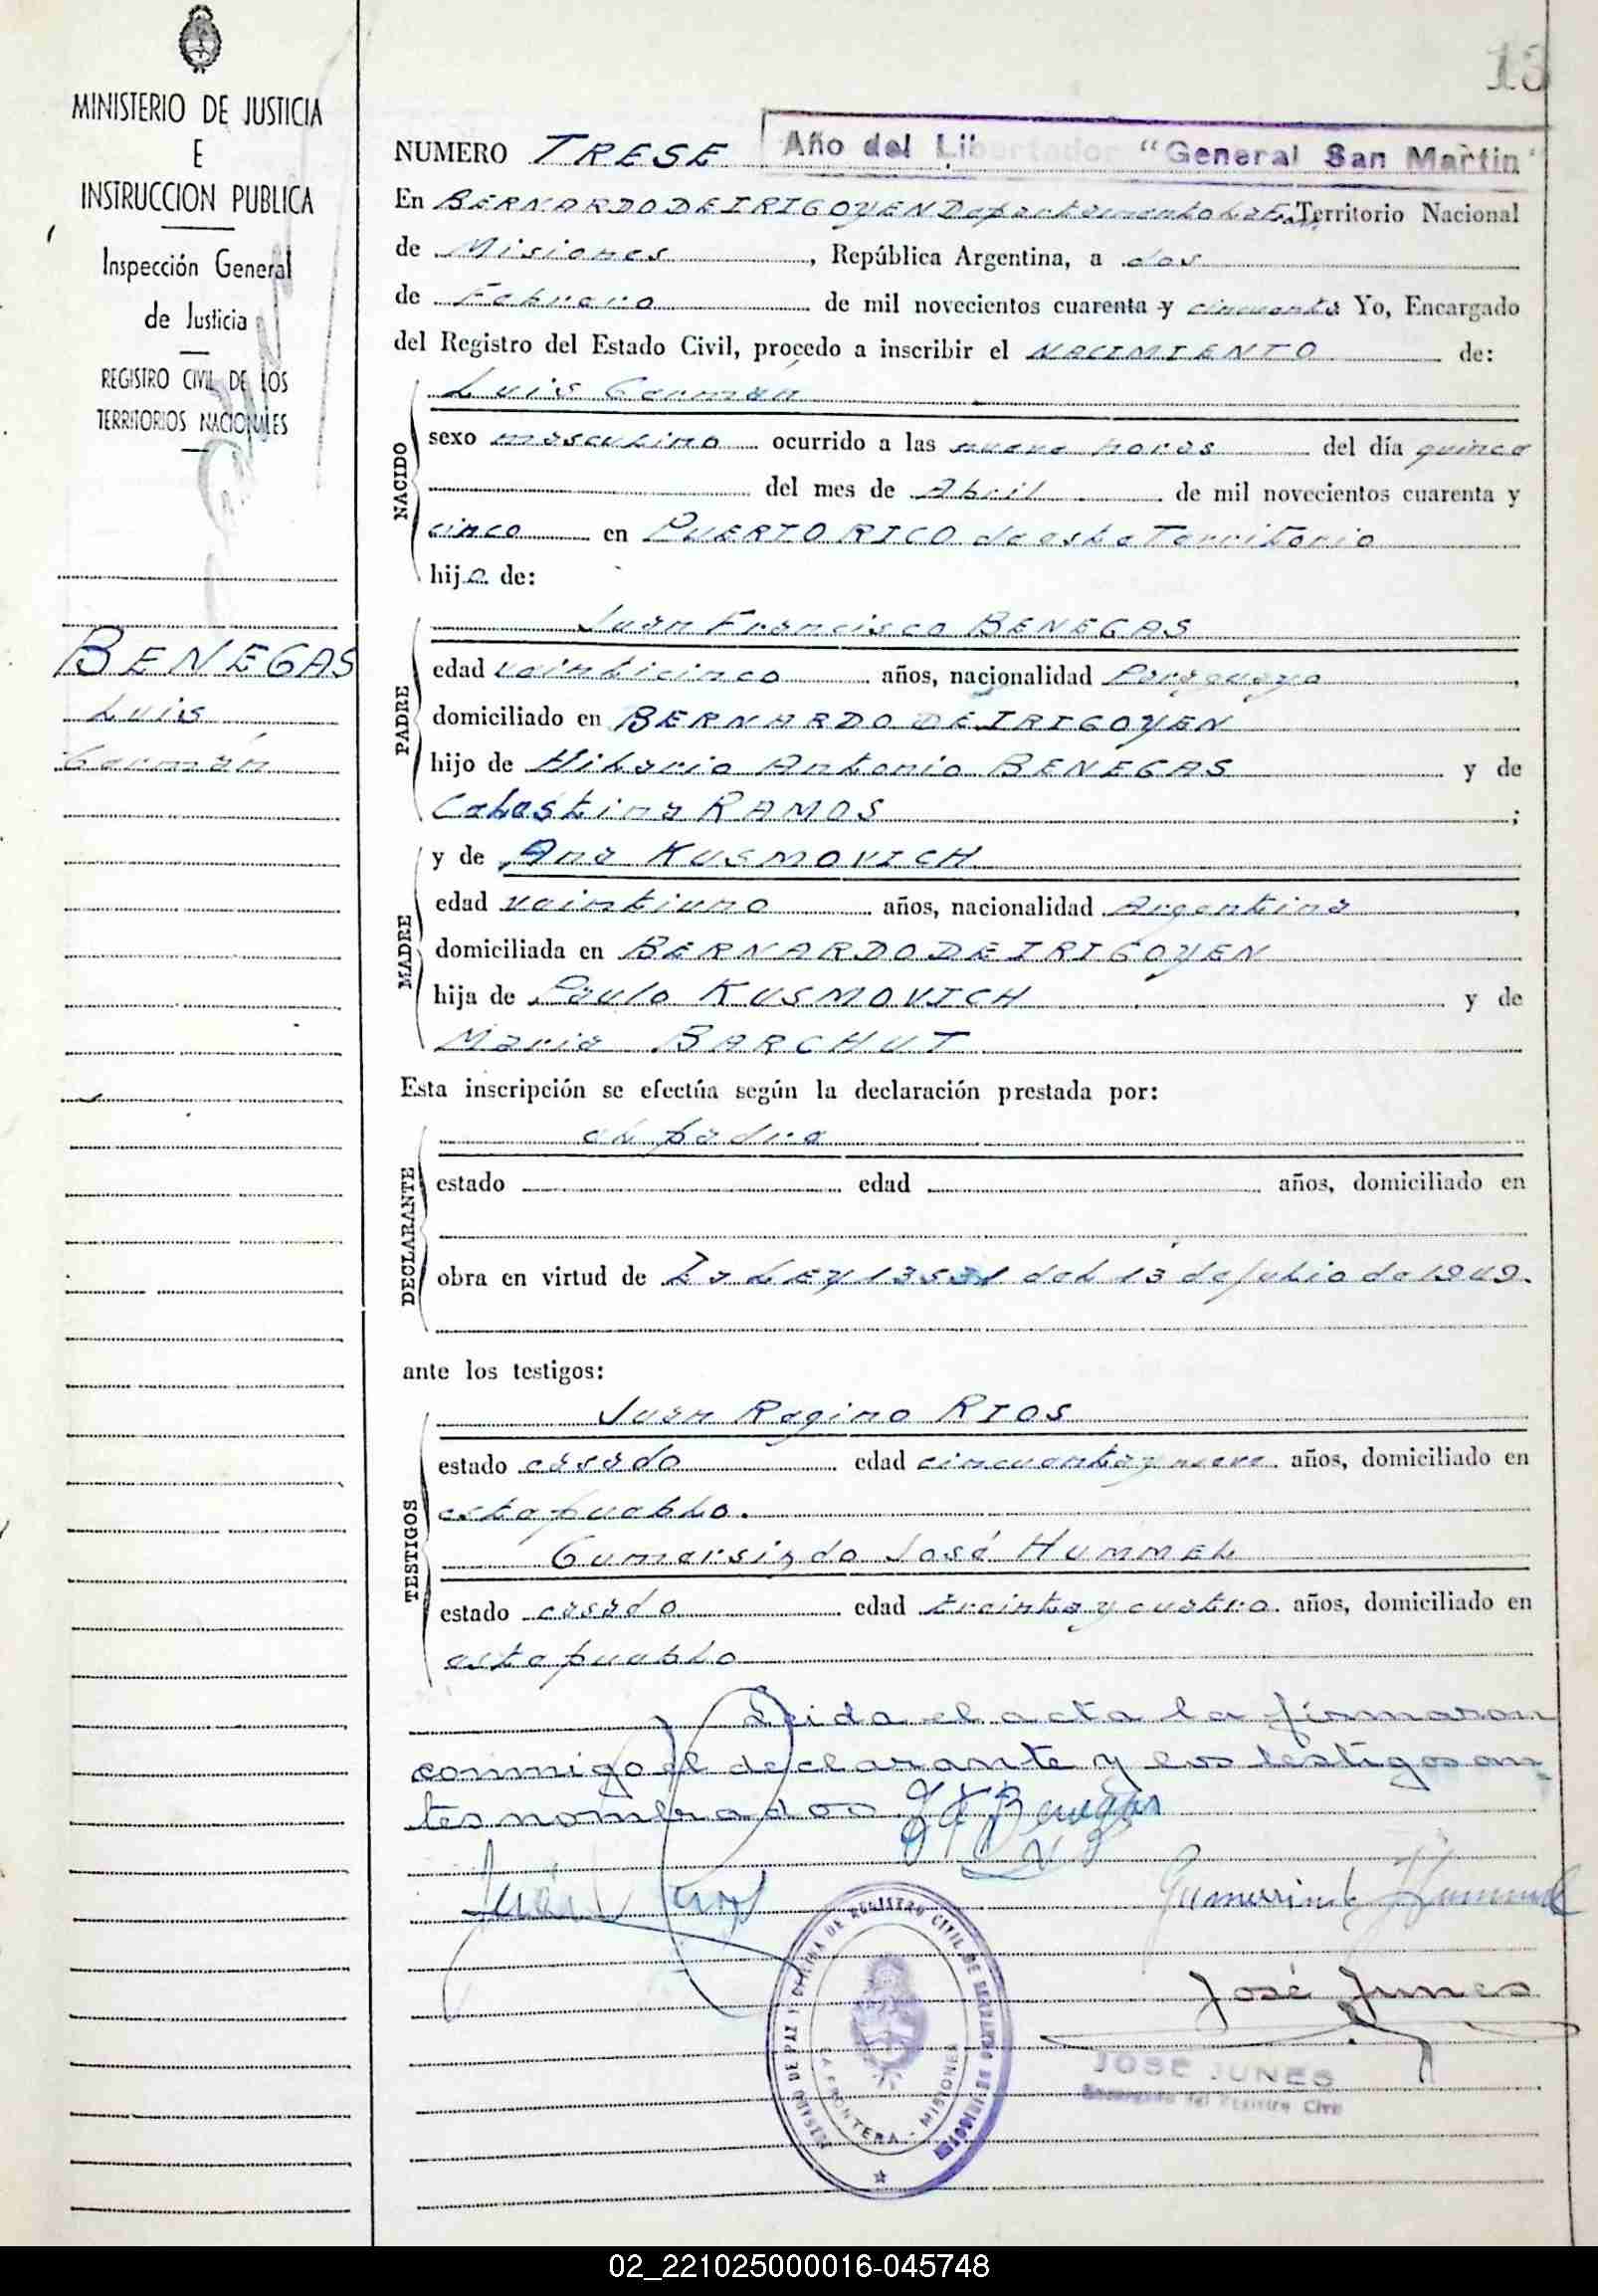 MINISTERIO DE JUSTICIA
E
INSTRUCCION PUBLICA
Inspección General
de Justicia
REGISTRO CIVIL DE LOS
TERRITORIOS NACIONALES
BENEGAS
Luis
Germán
13
NUMERO TRESE Año del Libertador "General San Martin"
En BERNARDO DE IRIGOYEN Departamento Territorio Nacional
de Misiones, República Argentina, a dos
de Febrero de mil novecientos cuarenta y cincuenta Yo, Encargado
del Registro del Estado Civil, procedo a inscribir el NACIMIENTO de:
Luis German
NACIDO
sexo masculino ocurrido a las nueve horas del día quince
del mes de Abril de mil novecientos cuarenta y
cinco en PUERTO RICO de este Territorio
hijo de:
Juan Francisco BENEGAS
PADRE
edad veinticinco años, nacionalidad Paraguaya,
domiciliado en BERNARDO DE IRIGOYEN
hijo de Hilario Antonio BENEGAS y de
Celestina RAMOS;
y de Ana KUSMOVICH
MADRE
edad veintiuno años, nacionalidad Argentina,
domiciliada en BERNARDO DE IRIGOYEN
hija de Paulo KUSMOVICH y de
Maria BARCHUT
Esta inscripción se efectúa según la declaración prestada por:
el padre
DECLARANTE
estado edad años, domiciliado en
obra en virtud de La LEY 13531 del 13 de Julio de 1949.
ante los testigos:
Juan Regino RIOS
TESTIGOS
estado casado edad cincuenta y nueve años, domiciliado en
este pueblo.
Gumersindo José HUMMEL
estado casado edad treinta y cuatro años, domiciliado en
este pueblo
Leida el acta la firmaron
conmigo el declarante y los testigos an-
tes nombrados J F Benegas
Juan Rios
Gumersindo Hummel
José Junes
JOSE JUNES
Encargado del Registro Civil
DE PAZ Y OFICINA DE REGISTRO CIVIL DE BERNARDO DE IRIGOYEN
FRONTERA - MISIONES
02_221025000016-045748